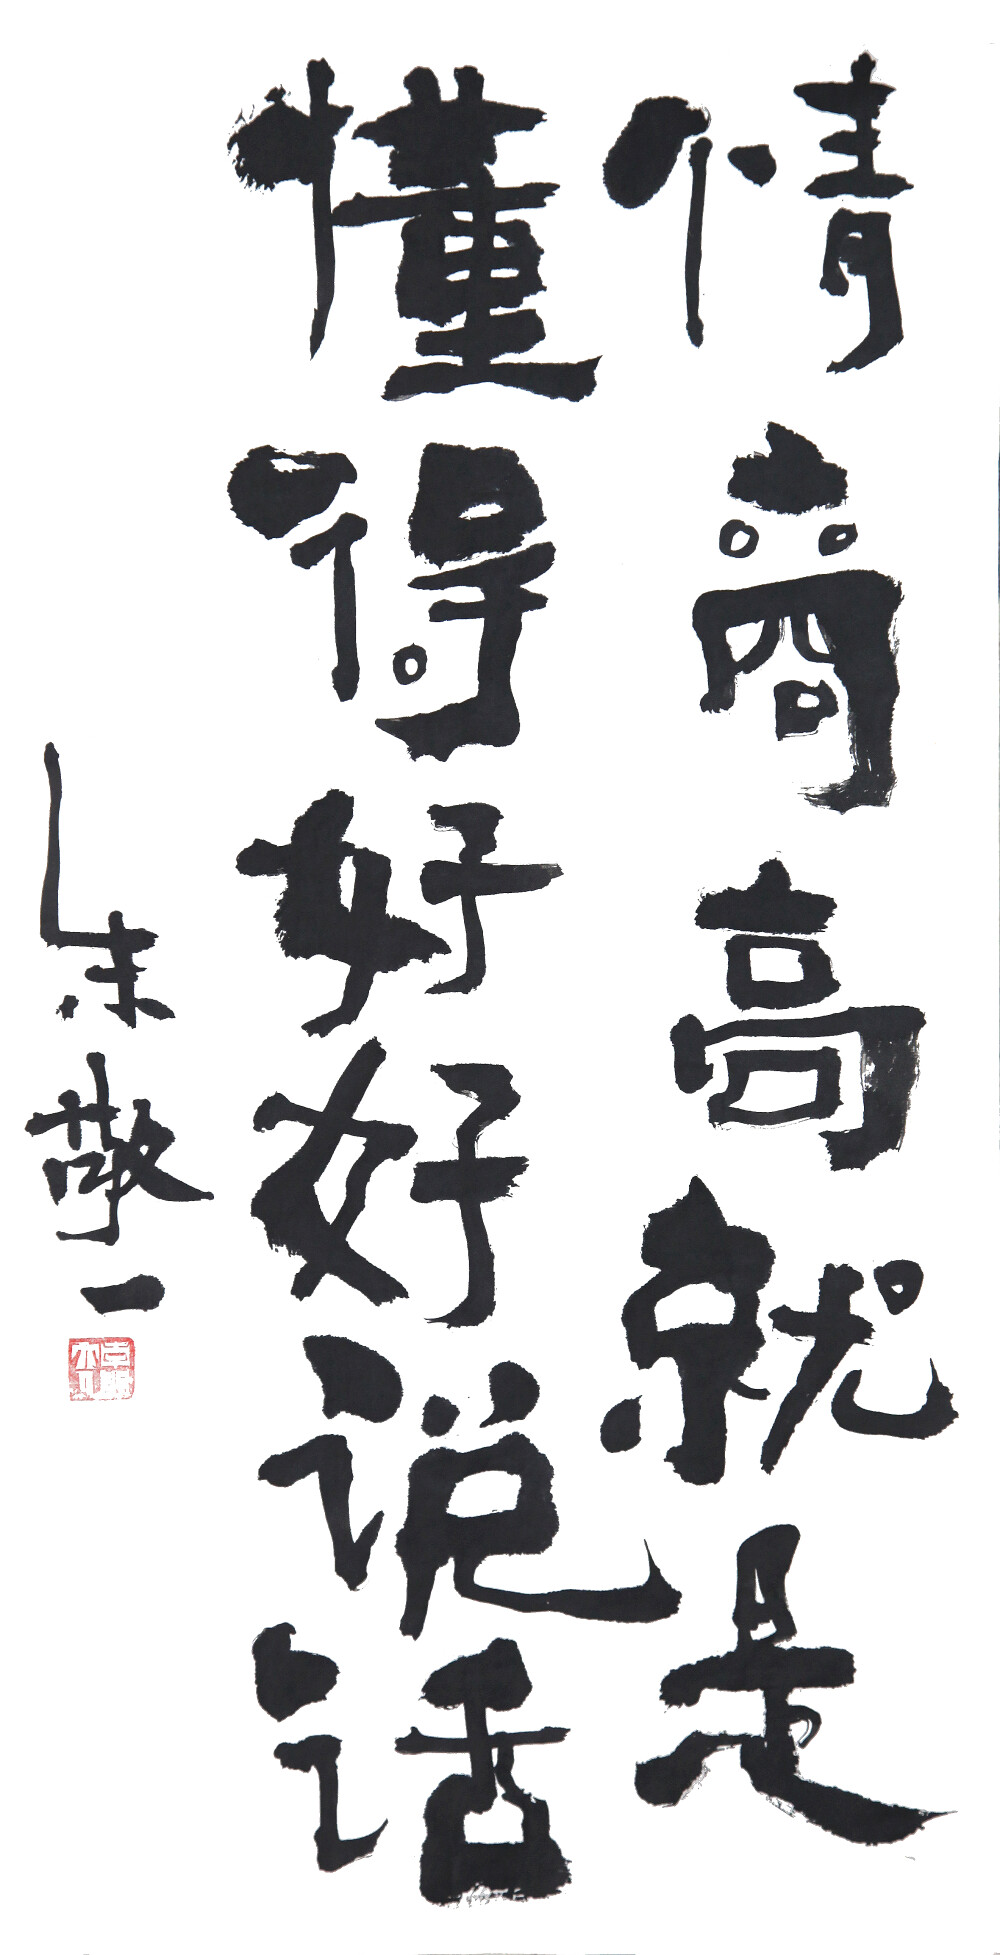 情商高就是
懂得好好说话
朱敬一